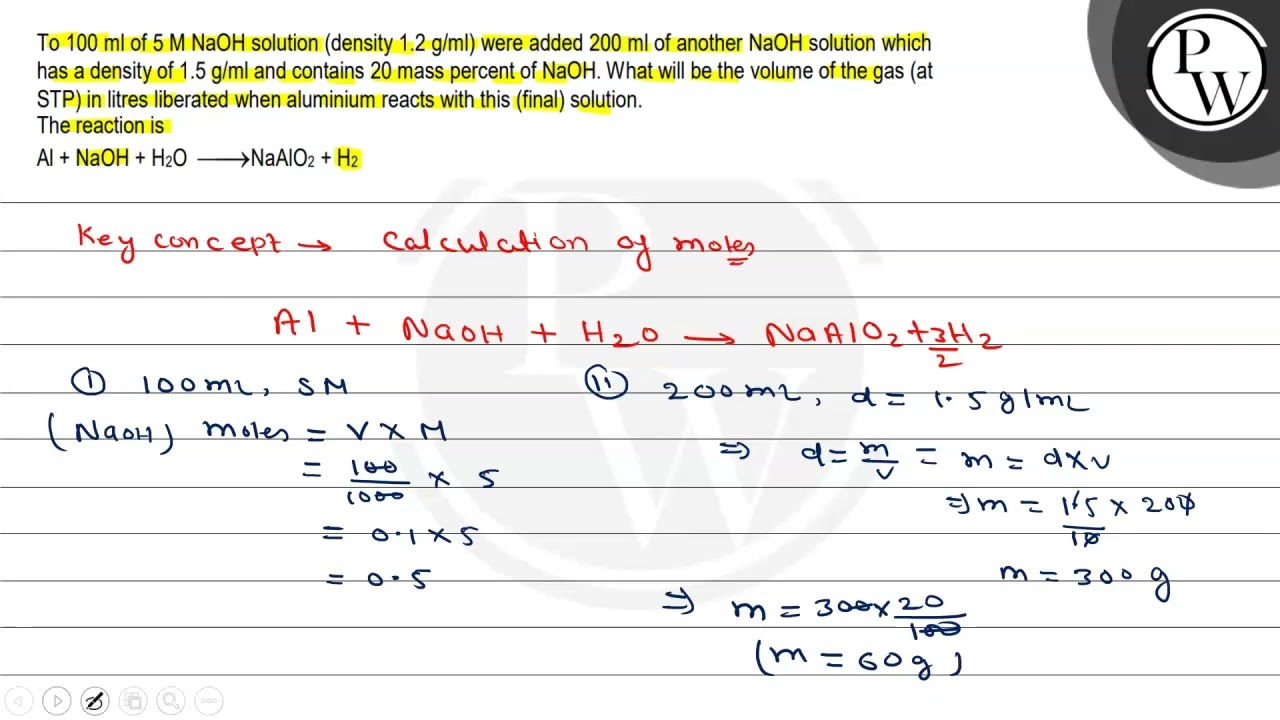 To 100 ml of 5 M NaOH solution (density 1.2 g/ml) were added 200 ml of another NaOH solution which
has a density of 1.5 g/ml and contains 20 mass percent of NaOH. What will be the volume of the gas (at
STP) in litres liberated when aluminium reacts with this (final) solution.
The reaction is
Al + NaOH + H₂O ⟶ NaAlO₂ + H₂
P
W
Key concept → Calculation of moles
Al + NaOH + H₂O → NaAlO₂ + 3/2 H₂
① 100mL, 5M
(NaOH) moles = V × M
= 100/1000 × 5
= 0.1 × 5
= 0.5
ⓘⓘ 200mL, d = 1.5 g/mL
⇒ d = m/v = m = d×v
⇒ m = 15/10 × 200
m = 300 g
⇒ m = 300 × 20/100
(m = 60g)